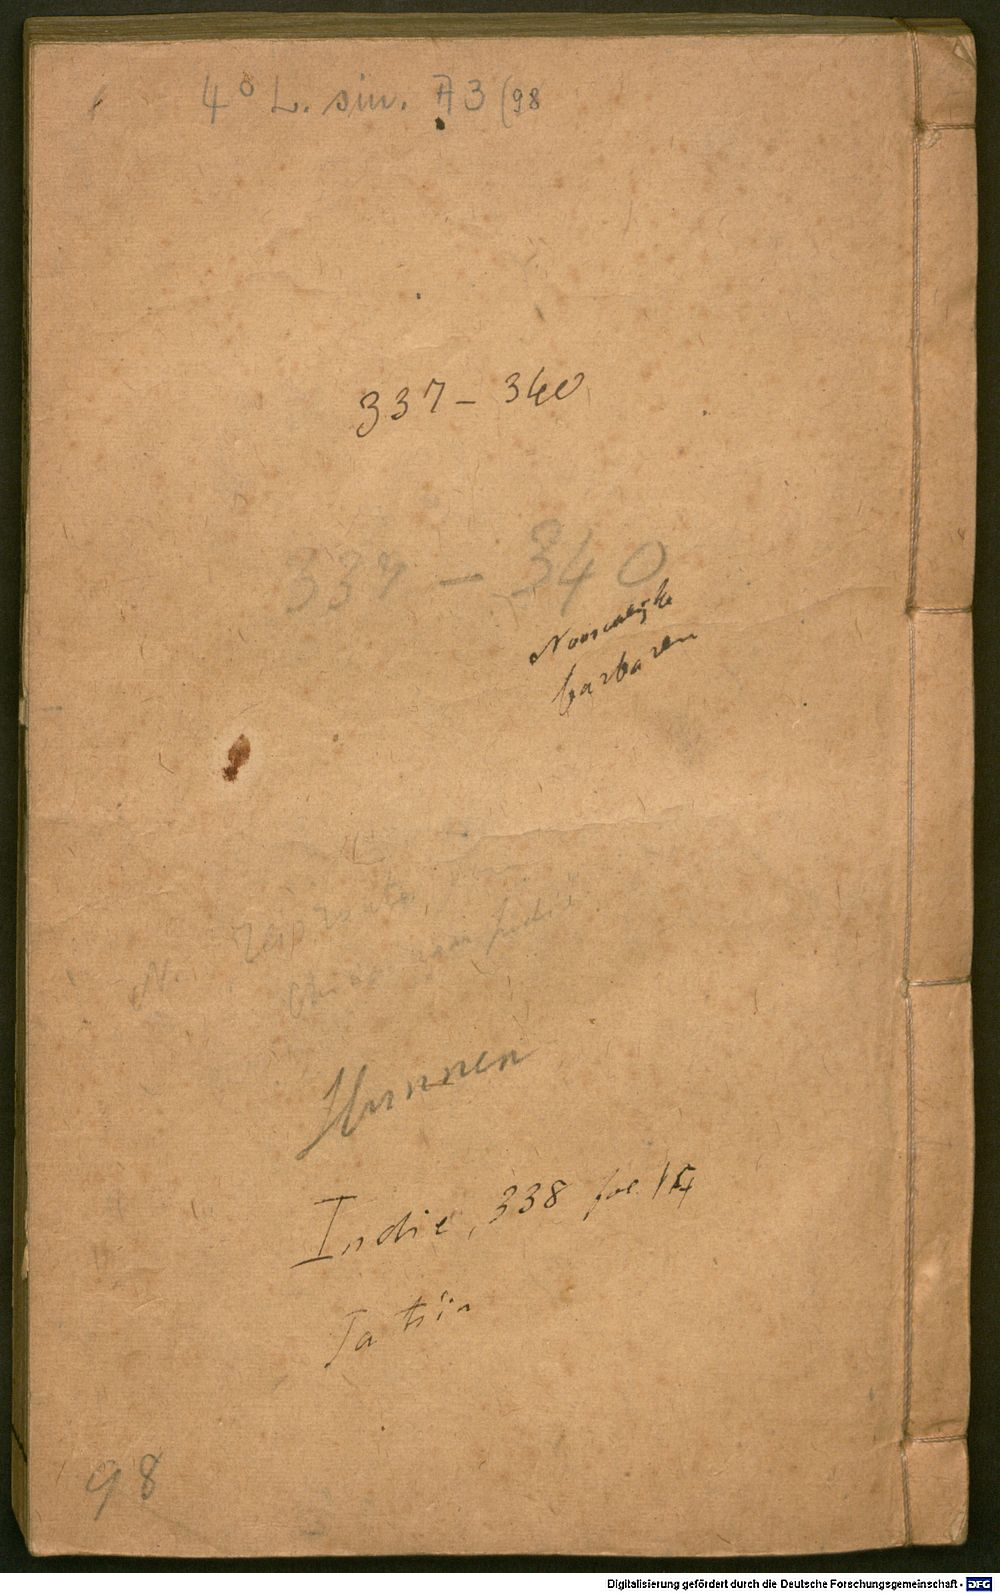 4° L. sin. A 3 (98
337 – 340
337 – 340
Noordelijke
barbaren
N.
Hunnen
Indië, 338 fol 14
Ta tsin
98
Digitalisierung gefördert durch die Deutsche Forschungsgemeinschaft - DFG